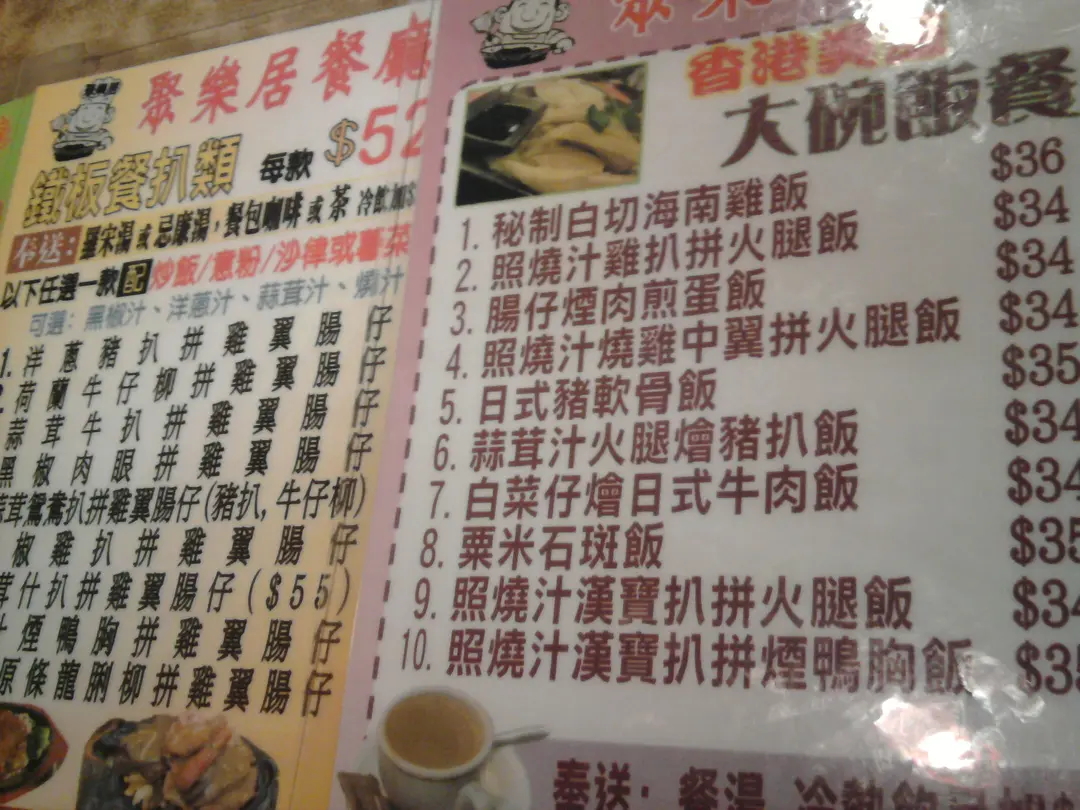 聚樂居餐廳
鐵板餐扒類 每款 $52
奉送: 羅宋湯 或 忌廉湯, 餐包 咖啡 或 茶 冷飲加$
以下任選一款配炒飯/意粉/沙律或薯菜
可選: 黑椒汁、洋蔥汁、蒜茸汁、燒汁
1. 洋蔥豬扒拼雞翼腸仔
荷蘭牛仔柳拼雞翼腸仔
蒜茸牛扒拼雞翼腸仔
黑椒肉眼拼雞翼腸仔
茸鴛鴦扒拼雞翼腸仔(豬扒,牛仔柳)
椒雞扒拼雞翼腸仔
茸什扒拼雞翼腸仔($55)
煙鴨胸拼雞翼腸仔
原條龍脷柳拼雞翼腸仔
聚樂
香港
大碗飯餐
1. 秘制白切海南雞飯 $36
2. 照燒汁雞扒拼火腿飯 $34
3. 腸仔煙肉煎蛋飯 $34
4. 照燒汁燒雞中翼拼火腿飯 $34
5. 日式豬軟骨飯 $35
6. 蒜茸汁火腿燴豬扒飯 $34
7. 白菜仔燴日式牛肉飯 $34
8. 粟米石斑飯 $35
9. 照燒汁漢寶扒拼火腿飯 $34
10. 照燒汁漢寶扒拼煙鴨胸飯 $35
奉送: 餐湯 冷熱飲